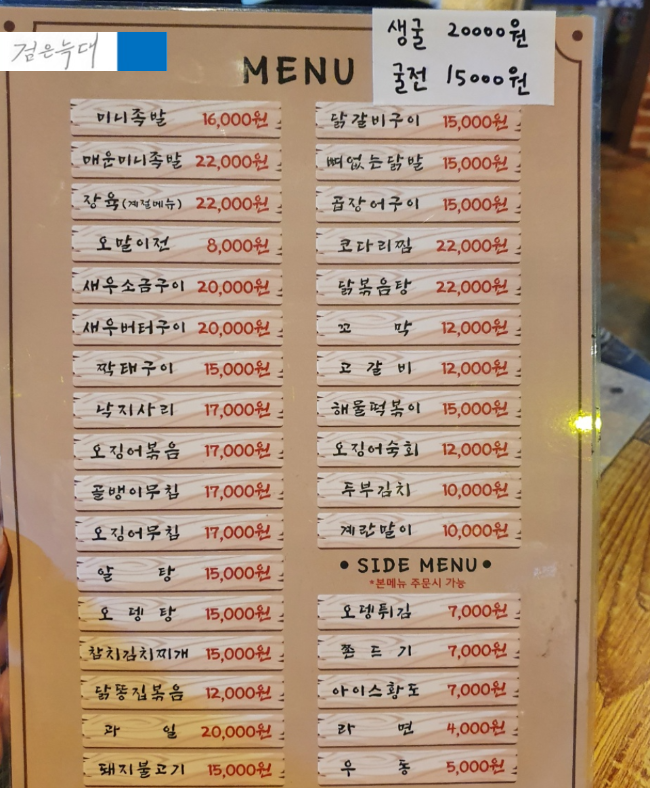 검은늑대
생굴 20000원
굴전 15000원
MENU
미니족발 16,000원
매운미니족발 22,000원
장육(계절메뉴) 22,000원
오말이전 8,000원
새우소금구이 20,000원
새우버터구이 20,000원
짝태구이 15,000원
낙지사리 17,000원
오징어볶음 17,000원
골뱅이무침 17,000원
오징어무침 17,000원
알 탕 15,000원
오 뎅 탕 15,000원
참치김치찌개 15,000원
닭똥집볶음 12,000원
과 일 20,000원
돼지불고기 15,000원
닭갈비구이 15,000원
뼈없는닭발 15,000원
곰장어구이 15,000원
코다리찜 22,000원
닭볶음탕 22,000원
꼬 막 12,000원
고 갈 비 12,000원
해물떡볶이 15,000원
오징어숙회 12,000원
두부김치 10,000원
계란말이 10,000원
• SIDE MENU •
*본메뉴 주문시 가능
오뎅튀김 7,000원
쫀 드 기 7,000원
아이스황도 7,000원
라 면 4,000원
우 동 5,000원